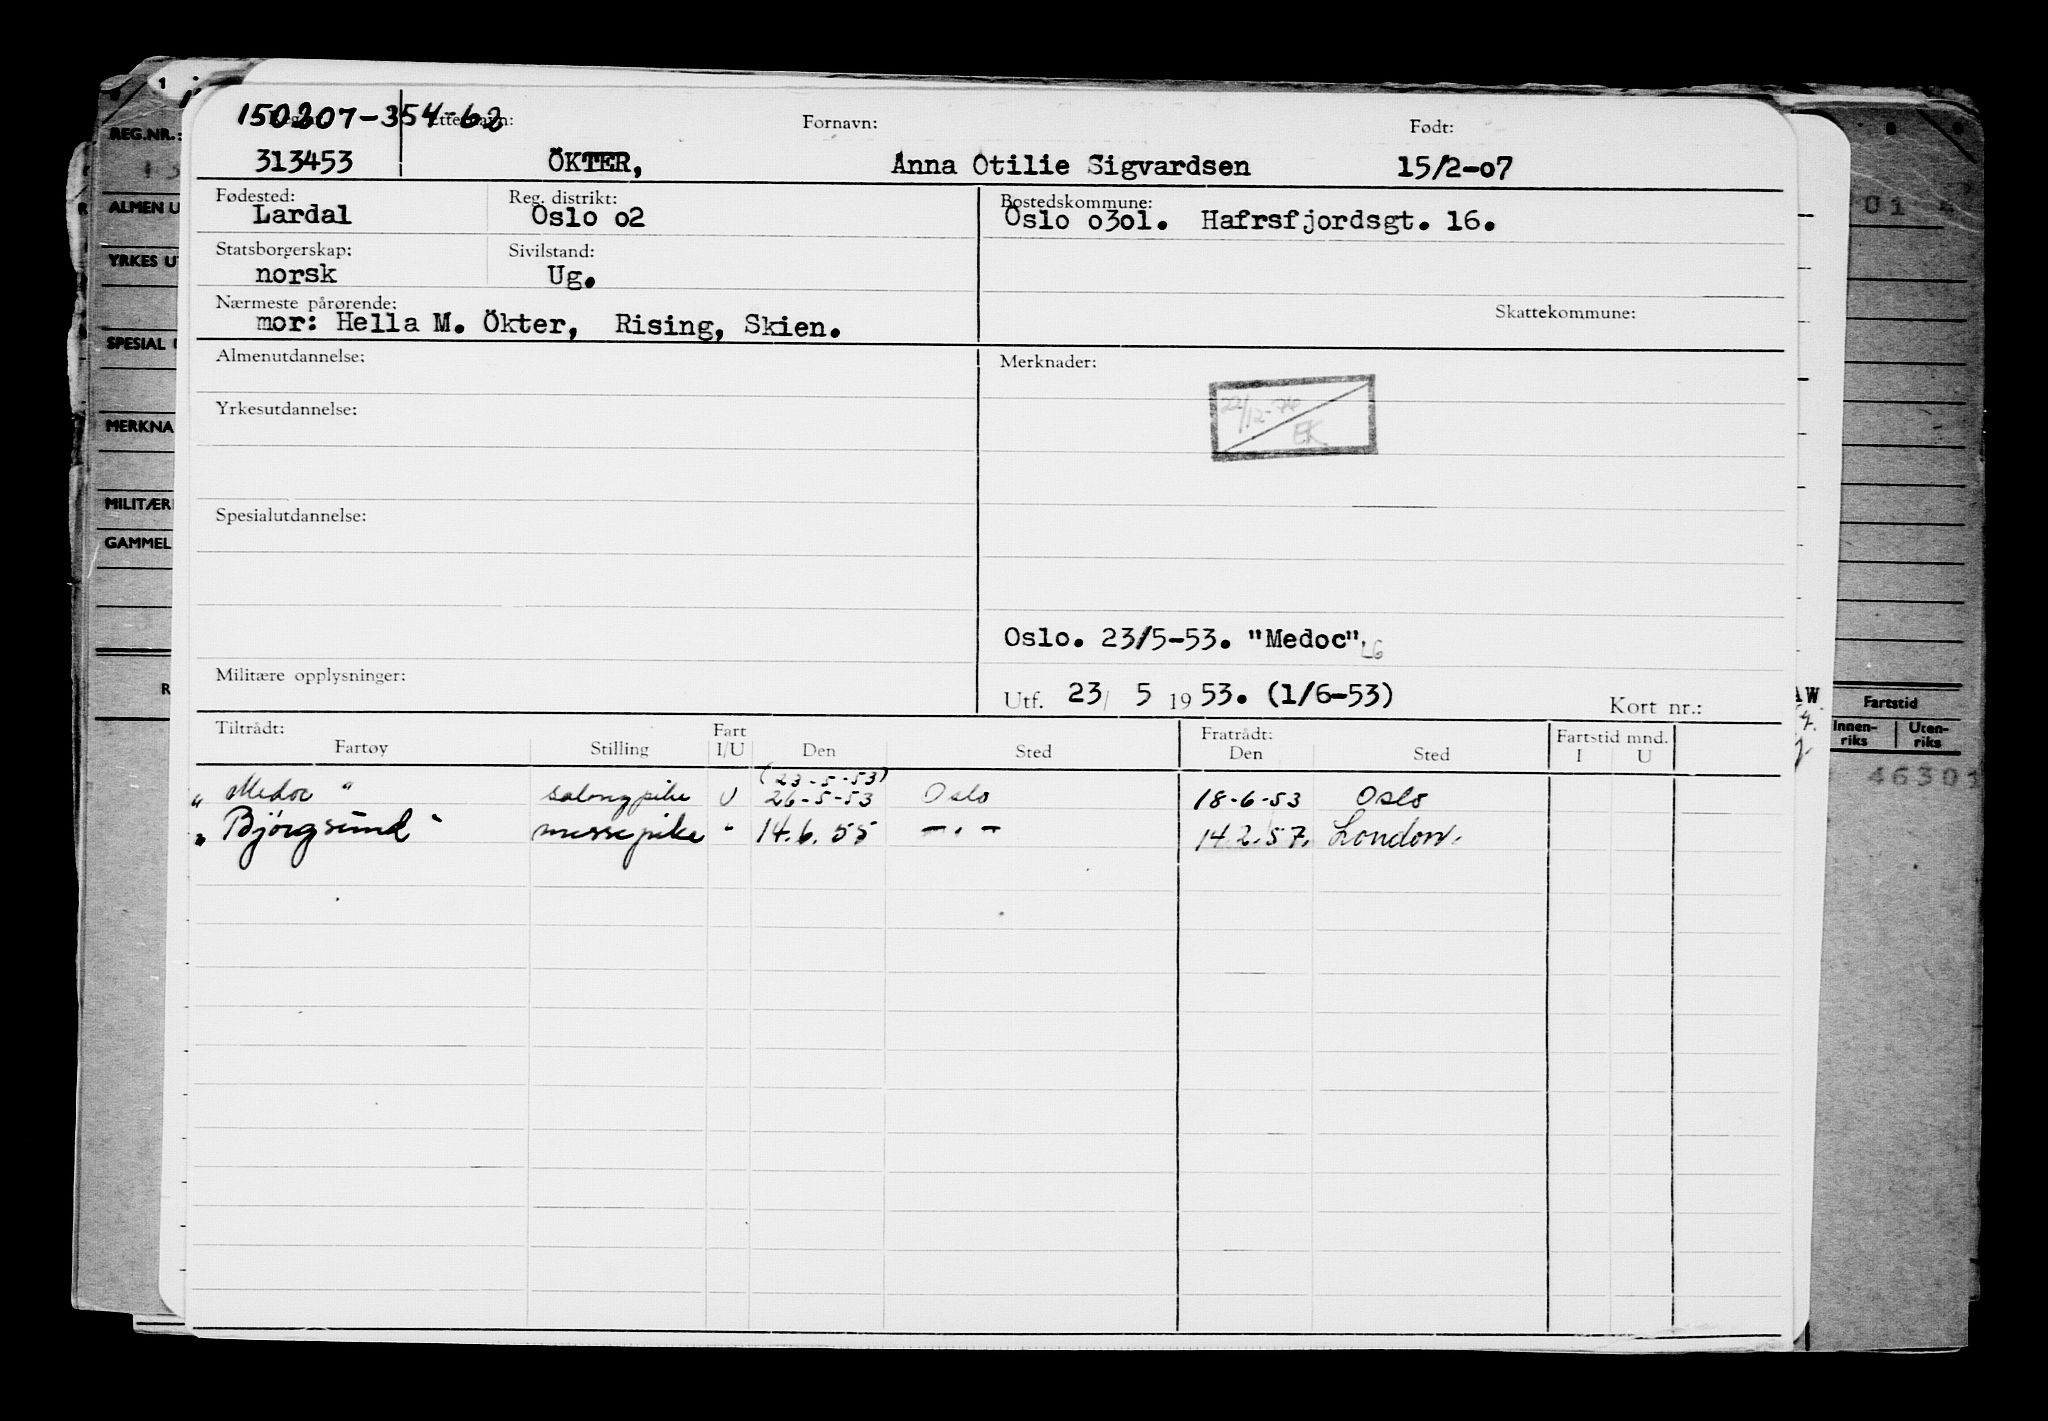 150207-354-62
Etternavn: Fornavn: Født:
313453 ÖKTER, Anna Otilie Sigvardsen 15/2-07
Fødested: Reg. distrikt: Bostedskommune:
Lardal Oslo o2 Oslo o3ol. Hafrsfjordsgt. 16.
Statsborgerskap: Sivilstand:
norsk Ug.
Nærmeste pårørende: Skattekommune:
mor: Hella M. Ökter, Rising, Skien.
Almenutdannelse: Merknader:
22/12-76
EK
Yrkesutdannelse:
Spesialutdannelse:
Oslo. 23/5-53. "Medoc" LG
Militære opplysninger:
Utf. 23/ 5 19 53. (1/6-53) Kort nr.:
Tiltrådt: Fart Fratrådt: Fartstid mnd.
Fartøy Stilling I/U Den Sted Den Sted I U
(23-5-53)
"Medoc" salongpike U 26-5-53 Oslo 18-6-53 Oslo
"Björgsund" messepike " 14.6.55 -.- 14.2.57. London.
1
REG.NR.:
ALMEN U
YRKES UT
SPESIAL
MERKNA
MILITÆR
GAMMEL
R
01
Fartstid
Innen-
riks
Uten-
riks
46301